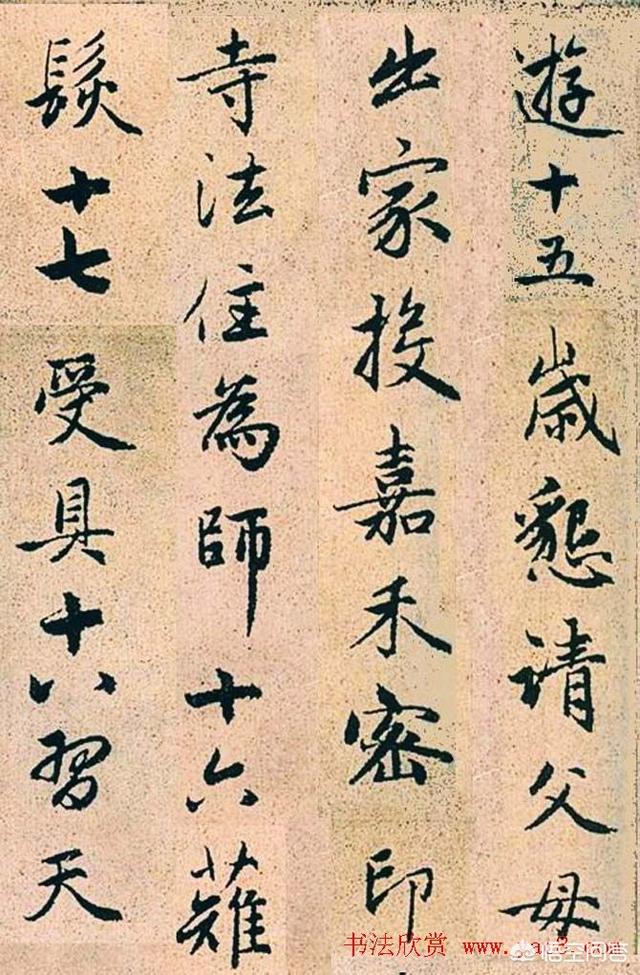 遊十五歲懇請父母
出家投嘉禾密印
寺法住為師十六薙
髮十七受具十八習天
书法欣赏 www.
悟空问答